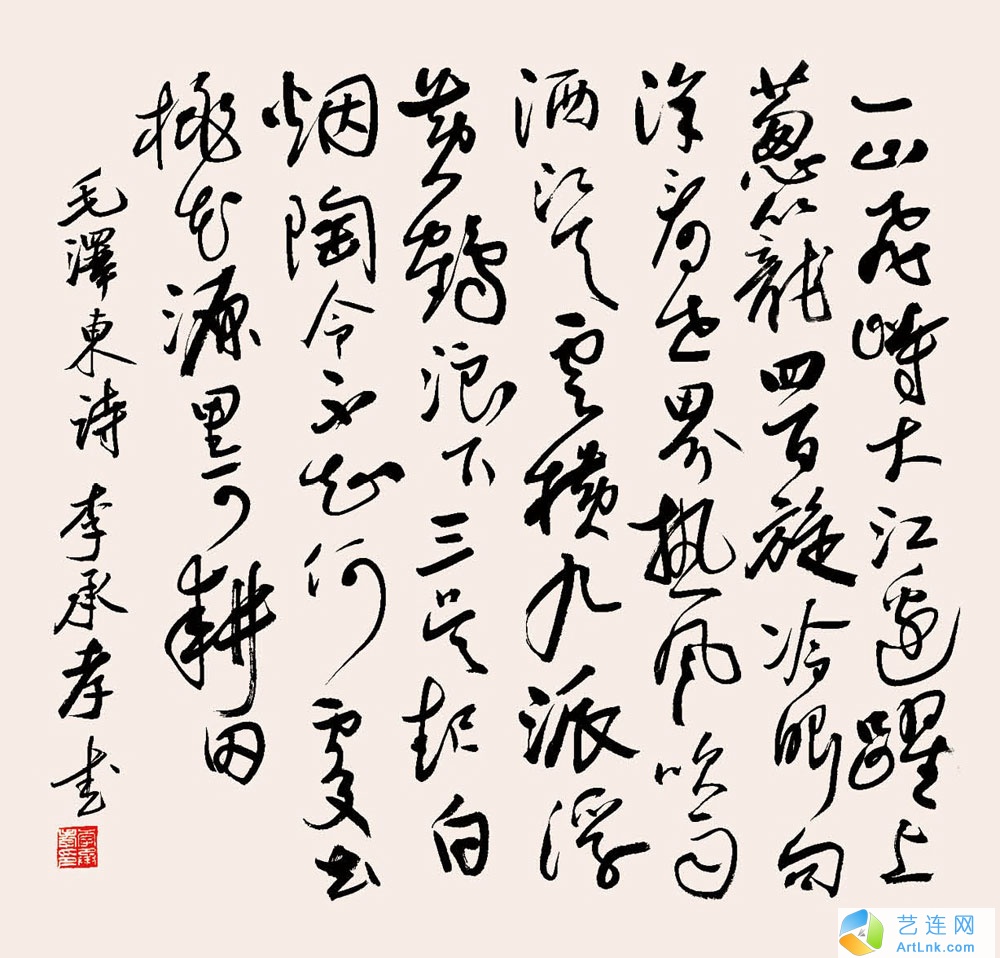 一山飛峙大江邊躍上
葱籠四百旋冷眼向
洋看世界热風吹雨
洒江天雲横九派浮
黄鹤浪下三吴起白
烟陶令不知何處去
桃花源里可耕田
毛澤東诗 李承孝书
艺连网
ArtLnk.com